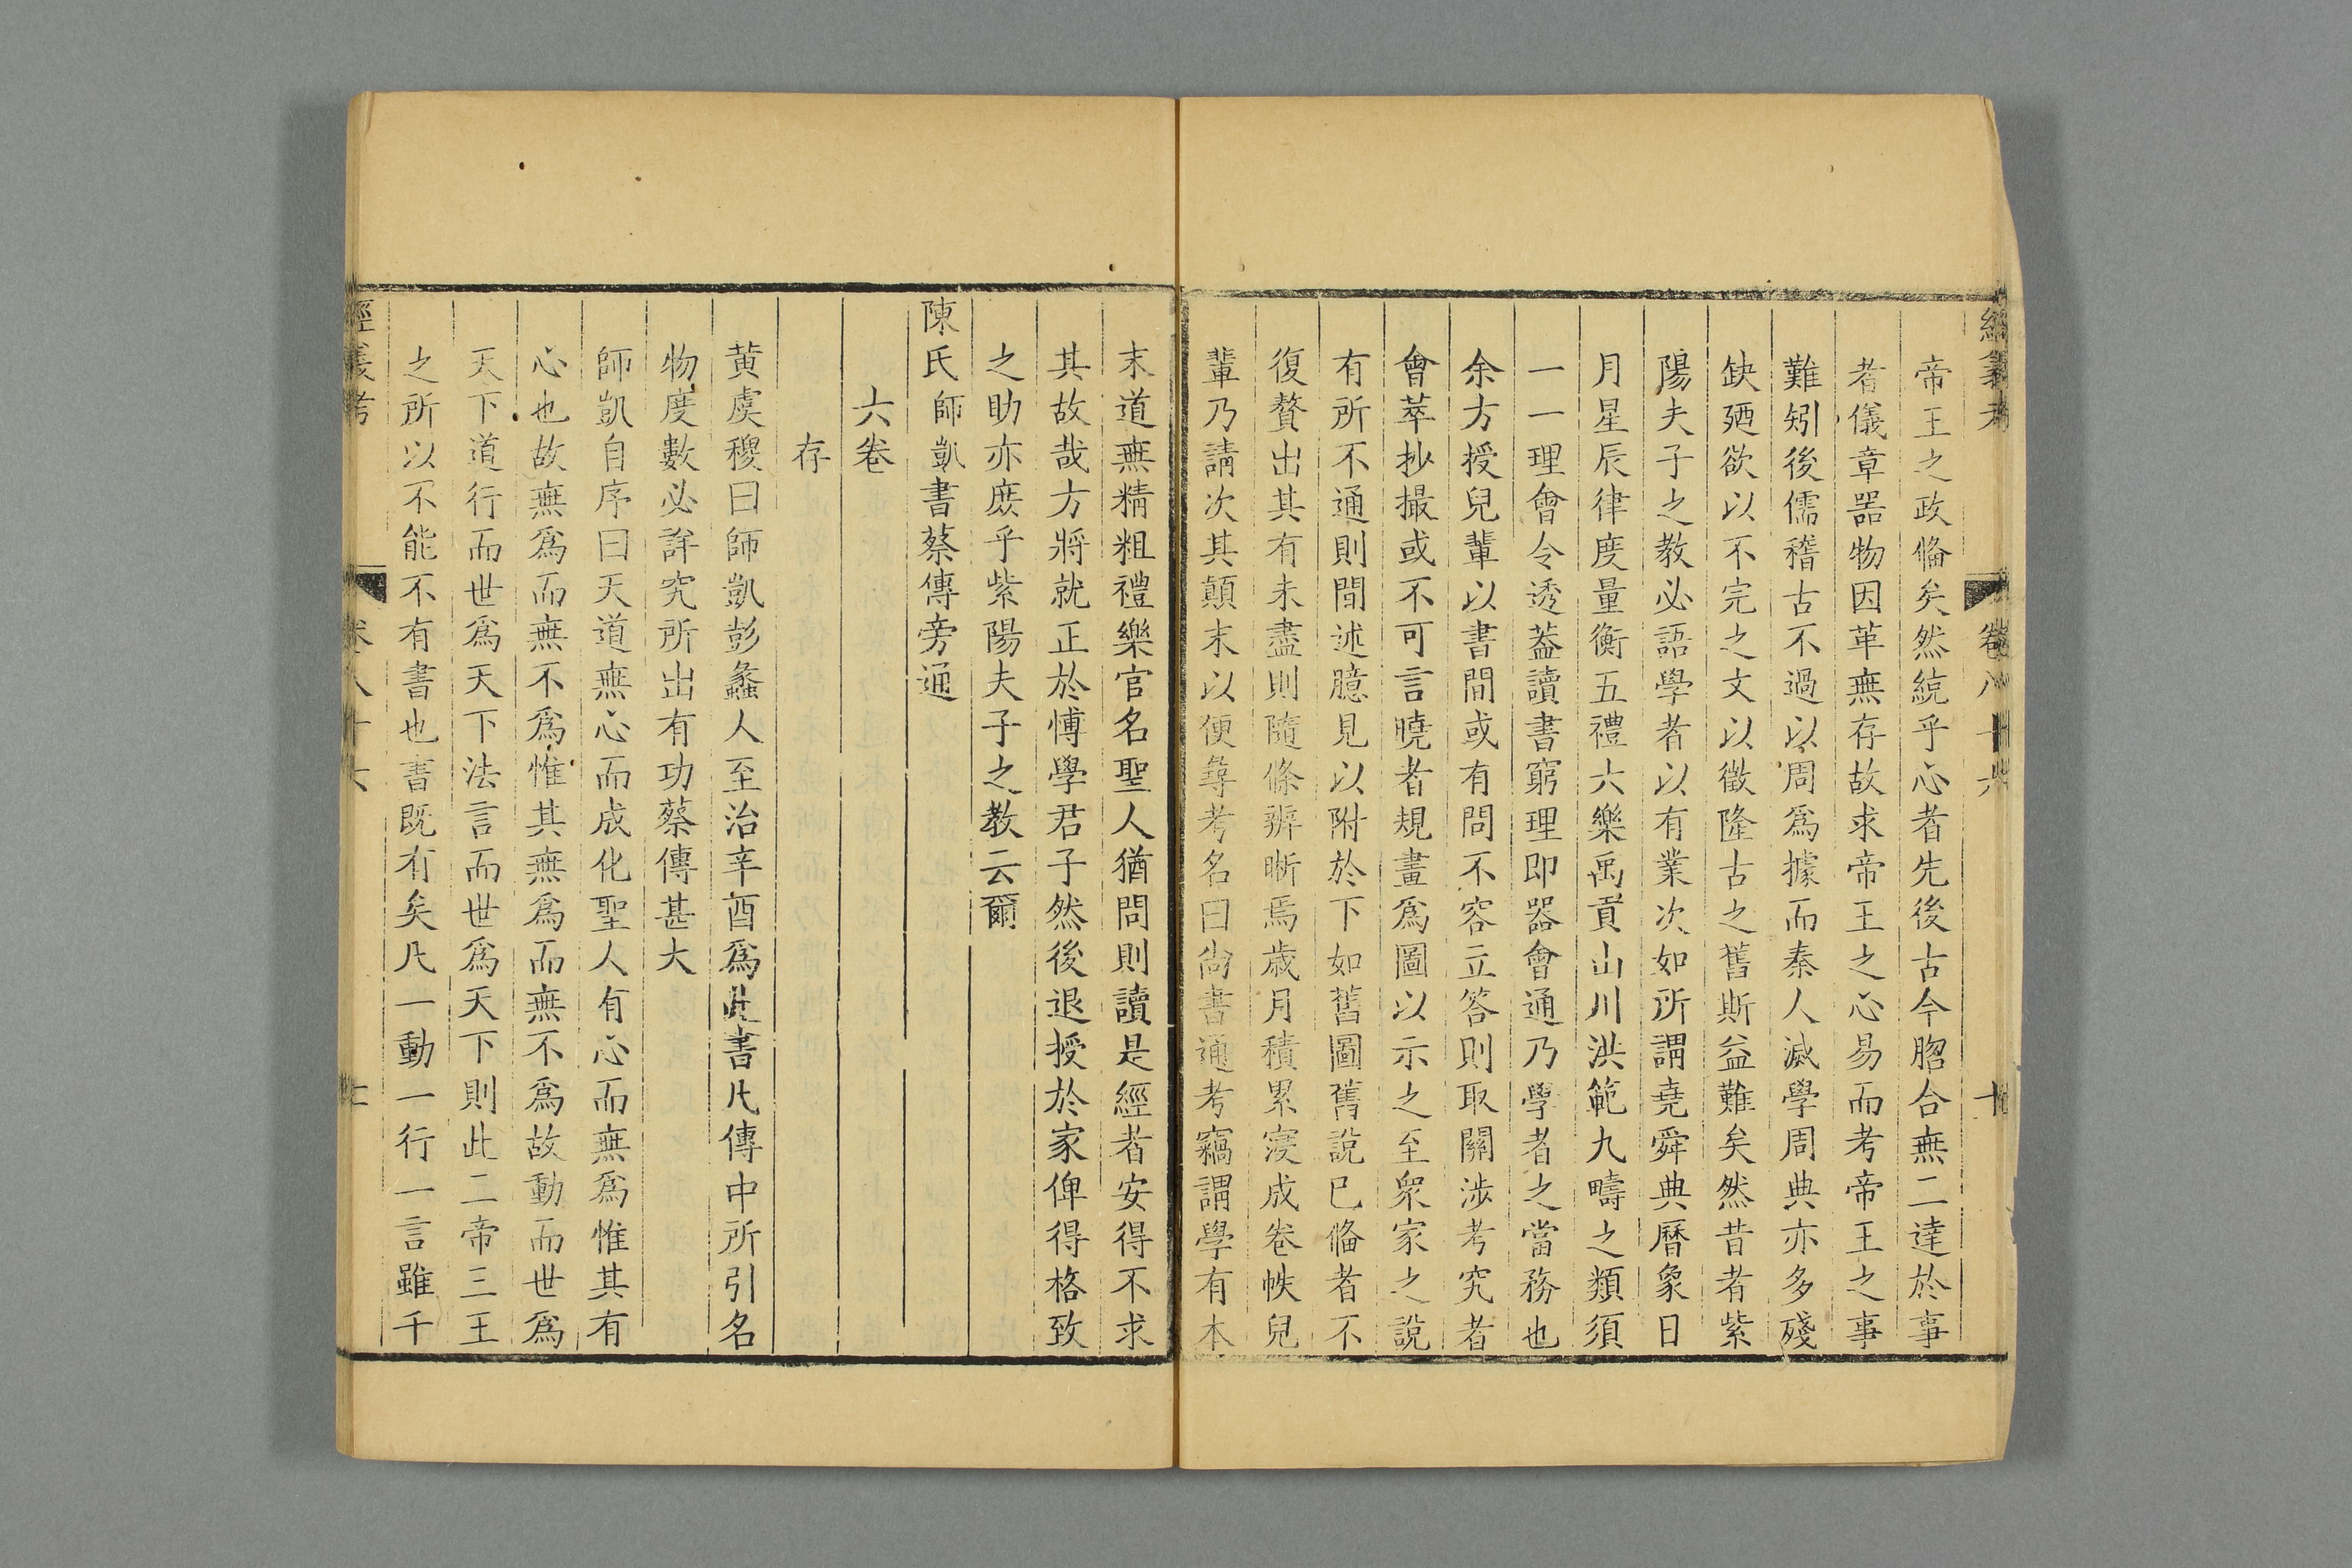 經義考 卷八十六 十
帝王之政備矣然統乎心者先後古今脗合無二達於事
者儀章器物因革無存故求帝王之心易而考帝王之事
難矧後儒稽古不過以周爲據而秦人滅學周典亦多殘
缺廼欲以不完之文以徵隆古之舊斯益難矣然昔者紫
陽夫子之教必語學者以有業次如所謂堯舜典曆象日
月星辰律度量衡五禮六樂禹貢山川洪範九疇之類須
一一理會令透葢讀書窮理即器會通乃學者之當務也
余方授兒輩以書間或有問不容立答則取關涉考究者
會萃抄撮或不可言曉者規畫爲圖以示之至衆家之說
有所不通則間述臆見以附於下如舊圖舊說已備者不
復贅出其有未盡則隨條辨晰焉歲月積累寖成卷帙兒
輩乃請次其顛末以便㝷考名曰尚書通考竊謂學有本
末道無精粗禮樂官名聖人猶問則讀是經者安得不求
其故哉方將就正於博學君子然後退授於家俾得格致
之助亦庶乎紫陽夫子之教云爾
陳氏師凱書蔡傳旁通
六卷
存
黄虞稷曰師凱彭蠡人至治辛酉爲此書凡傳中所引名
物度數必詳究所出有功蔡傳甚大
師凱自序曰天道無心而成化聖人有心而無爲惟其有
心也故無爲而無不爲惟其無爲而無不爲故動而世爲
天下道行而世爲天下法言而世爲天下則此二帝三王
之所以不能不有書也書既有矣凡一動一行一言雖千
經義考 卷八十六